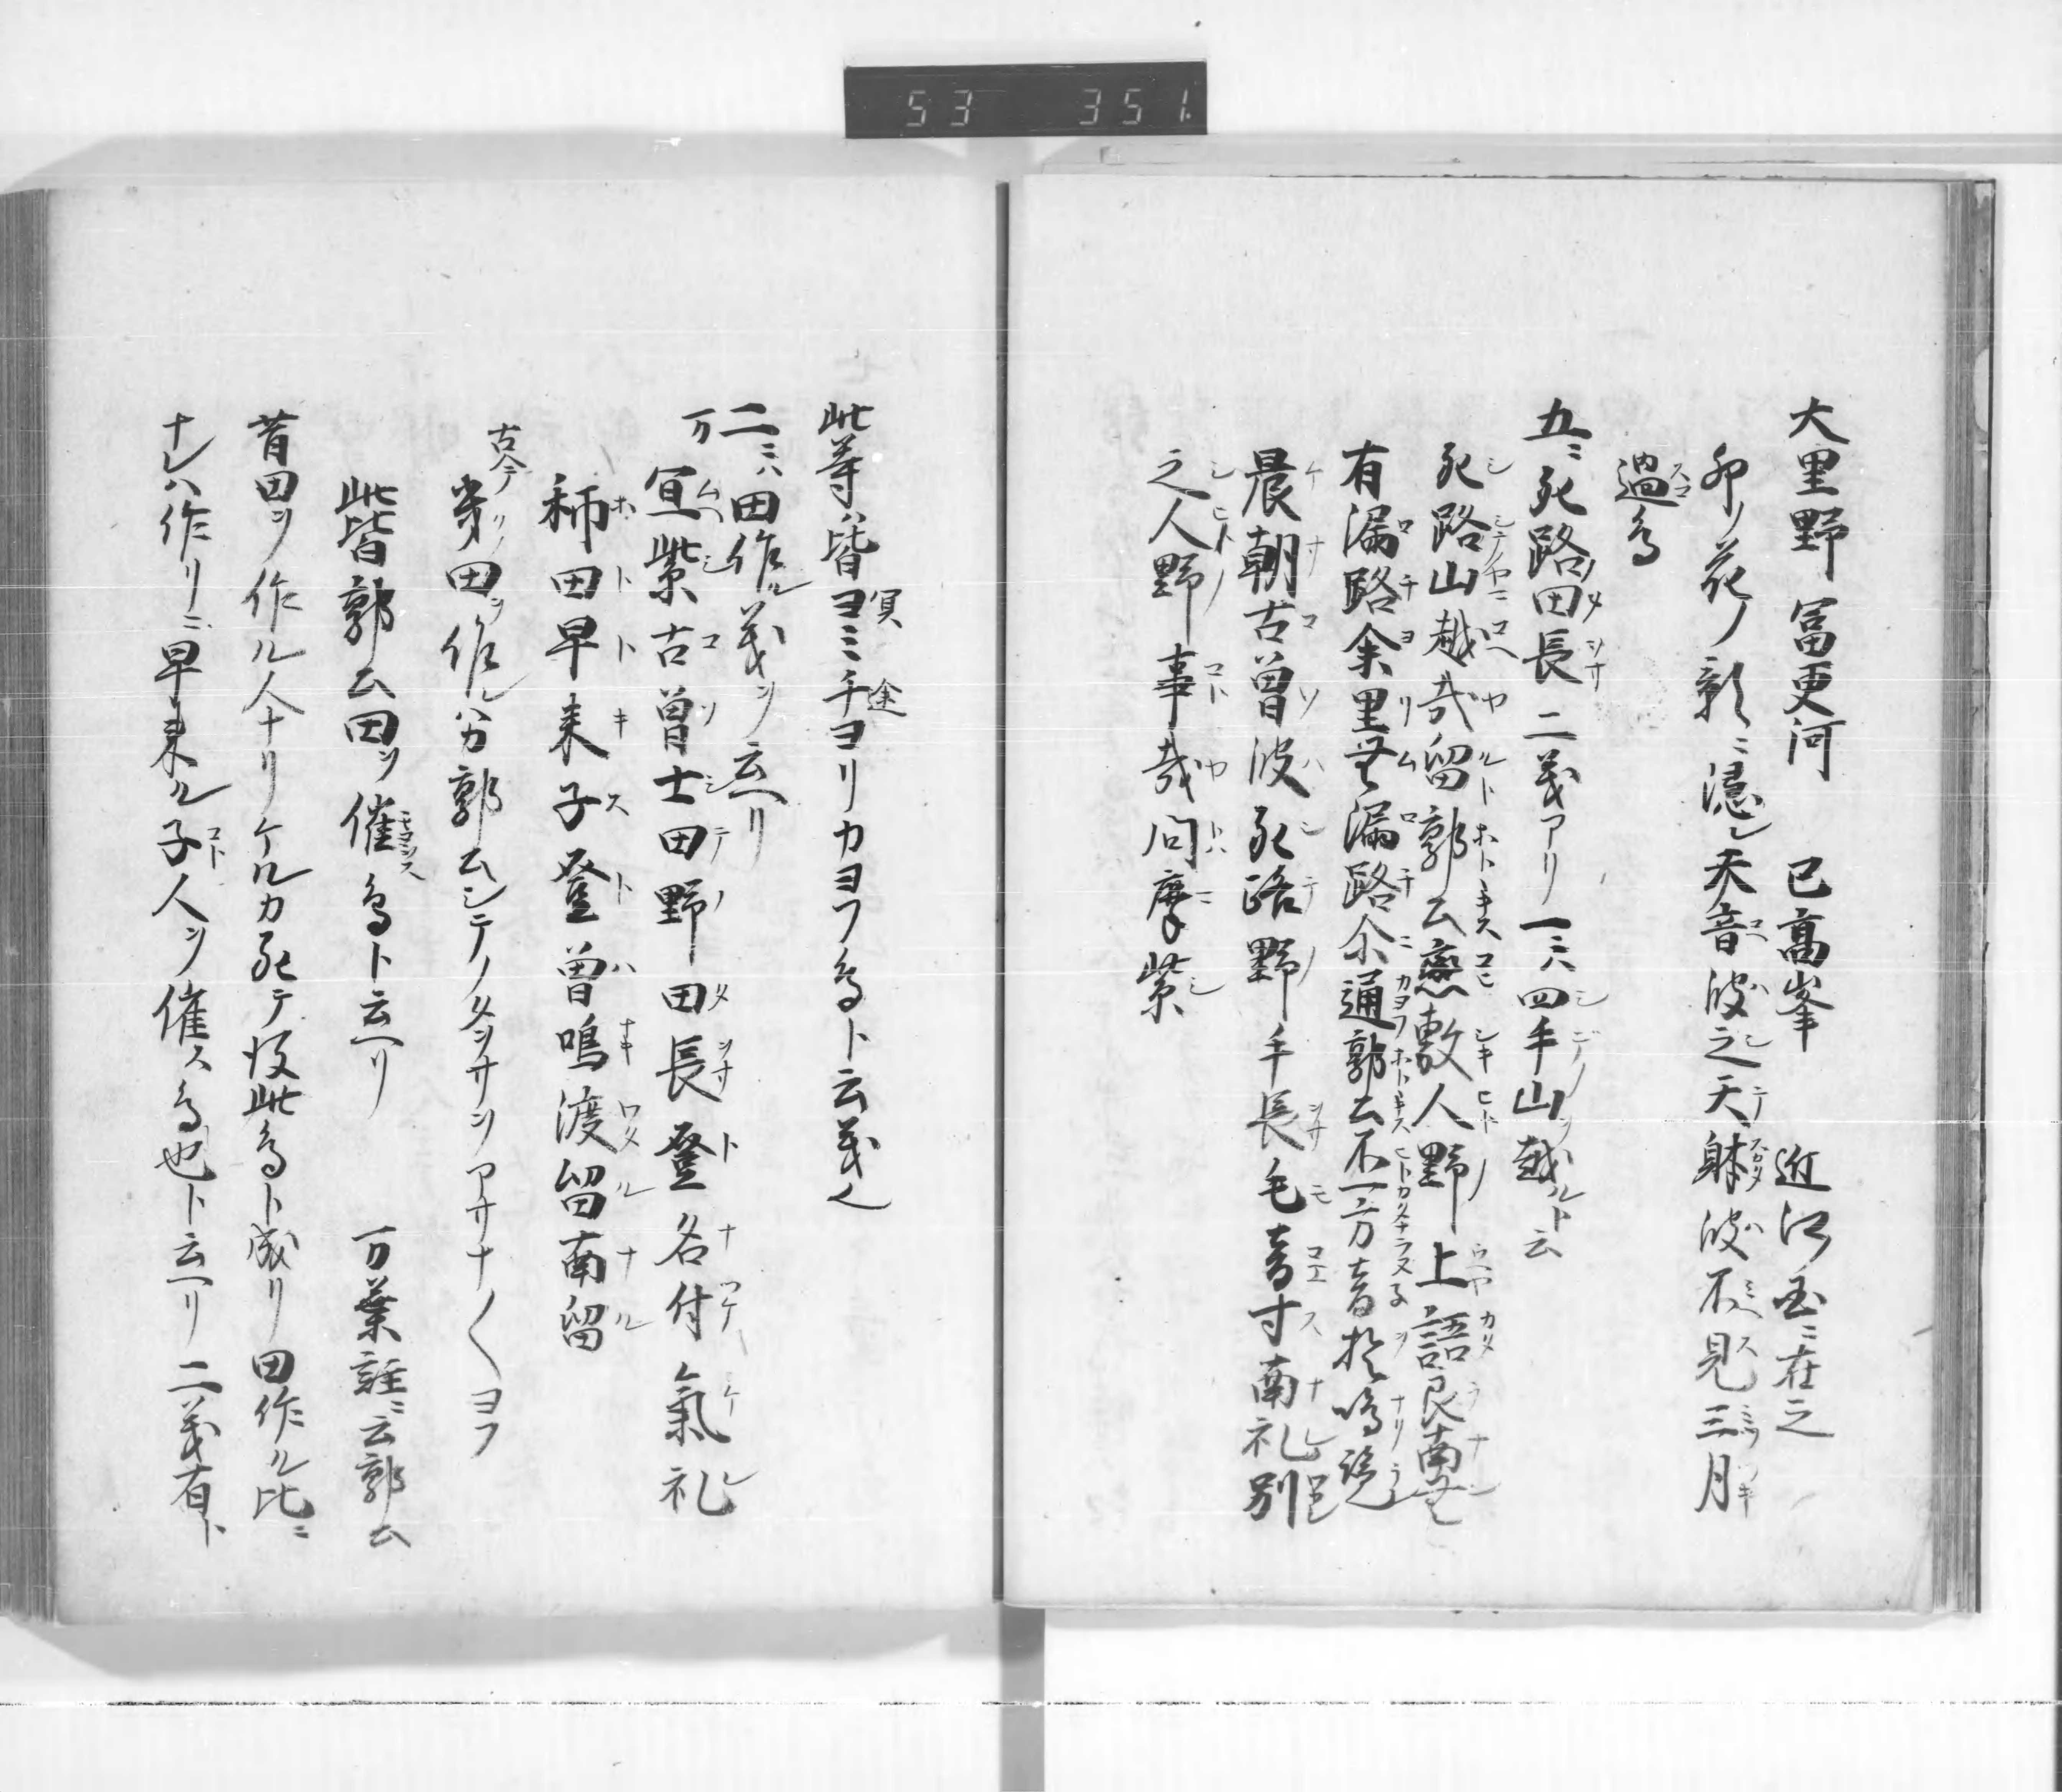 53 351.
大里野 冨更河 已髙峯 近江国ニ在之
卯ノ花ノ影ニ隠レ天音波之天躰波不見三月
過鳥
五ニ死路田長 二義アリ 一ニハ四手山越ルト云
死路山越哉留郭公恋敷人野上語良南無
有漏路余里無漏路尓通郭公不一方音於鳴覧
晨朝古曽波死路野手長毛音寸南礼別
之人野事哉问摩紫
此等ハ皆ヨミチヨリカヨフ鳥ト云義也
二ニハ田作ル義ヲ云ヘリ
万 宜紫古曽士田野田長登名付氣礼
稀田早来子登曽鳴渡留南留
古今ニ 田ヲ作レハカ郭公シテノタヲサヲアサナ〱ヨフ
此皆郭公田ヲ催鳥ト云ヘリ 万葉註ニ云郭公
昔田ヲ作ル人ナリケルカ死テ後此鳥ト成リ田作ル比ニ
ナレハ作リニ早来ル子人ヲ催ス鳥也ト云ヘリ二義有ト